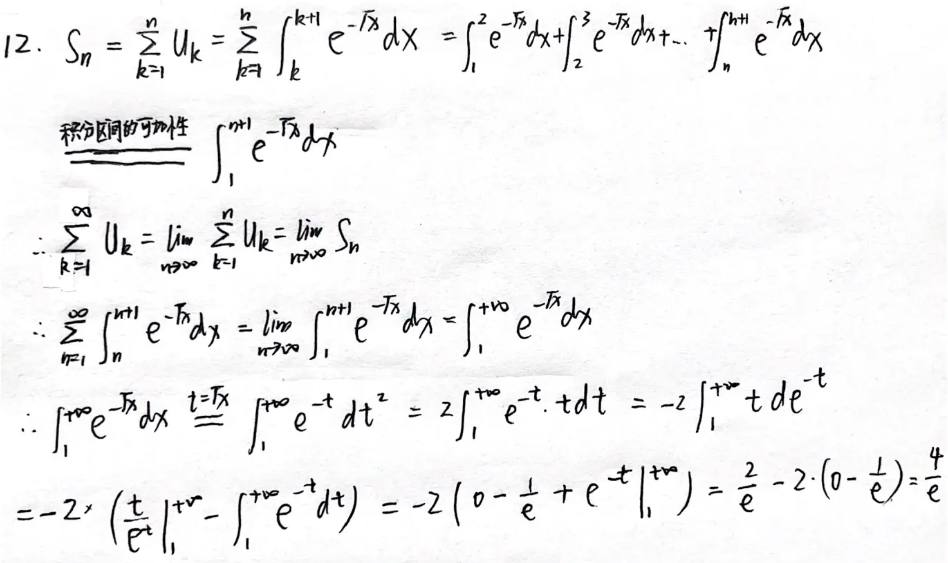 12. Sₙ = ∑_{k=1}^{n} U_k = ∑_{k=1}^{n} ∫_{k}^{k+1} e^{-√x} dx = ∫_{1}^{2} e^{-√x} dx + ∫_{2}^{3} e^{-√x} dx + ... + ∫_{n}^{n+1} e^{-√x} dx
积分区间的可加性 ∫_{1}^{n+1} e^{-√x} dx
∴ ∑_{k=1}^{∞} U_k = lim_{n→∞} ∑_{k=1}^{n} U_k = lim_{n→∞} Sₙ
∴ ∑_{n=1}^{∞} ∫_{n}^{n+1} e^{-√x} dx = lim_{n→∞} ∫_{1}^{n+1} e^{-√x} dx = ∫_{1}^{+∞} e^{-√x} dx
∴ ∫_{1}^{+∞} e^{-√x} dx \overset{t=√x}{=} ∫_{1}^{+∞} e^{-t} dt² = 2∫_{1}^{+∞} e^{-t}·t dt = -2∫_{1}^{+∞} t de^{-t}
= -2×(t/e^t |_{1}^{+∞} - ∫_{1}^{+∞} e^{-t} dt) = -2(0 - 1/e + e^{-t} |_{1}^{+∞}) = 2/e - 2·(0 - 1/e) = 4/e